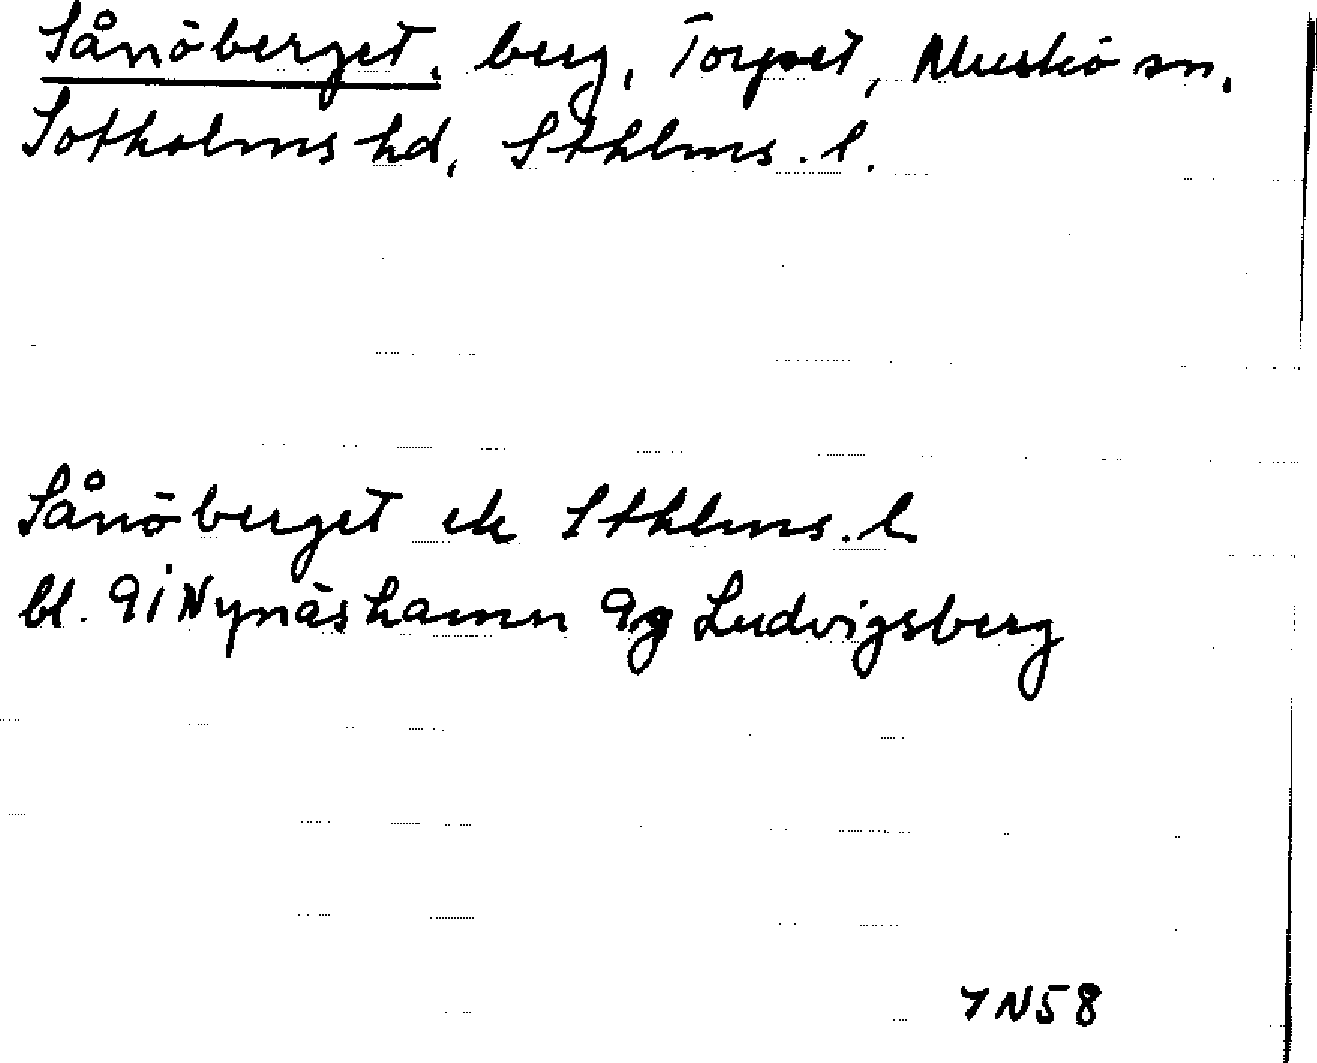 Sånöberget, berg, Torpet, Muskö sn,
Sotholms hd, Sthlms. l.
Sånöberget ek Sthlms. l
bl. 9i Nynäshamn 9g Ludvigsberg
7N58